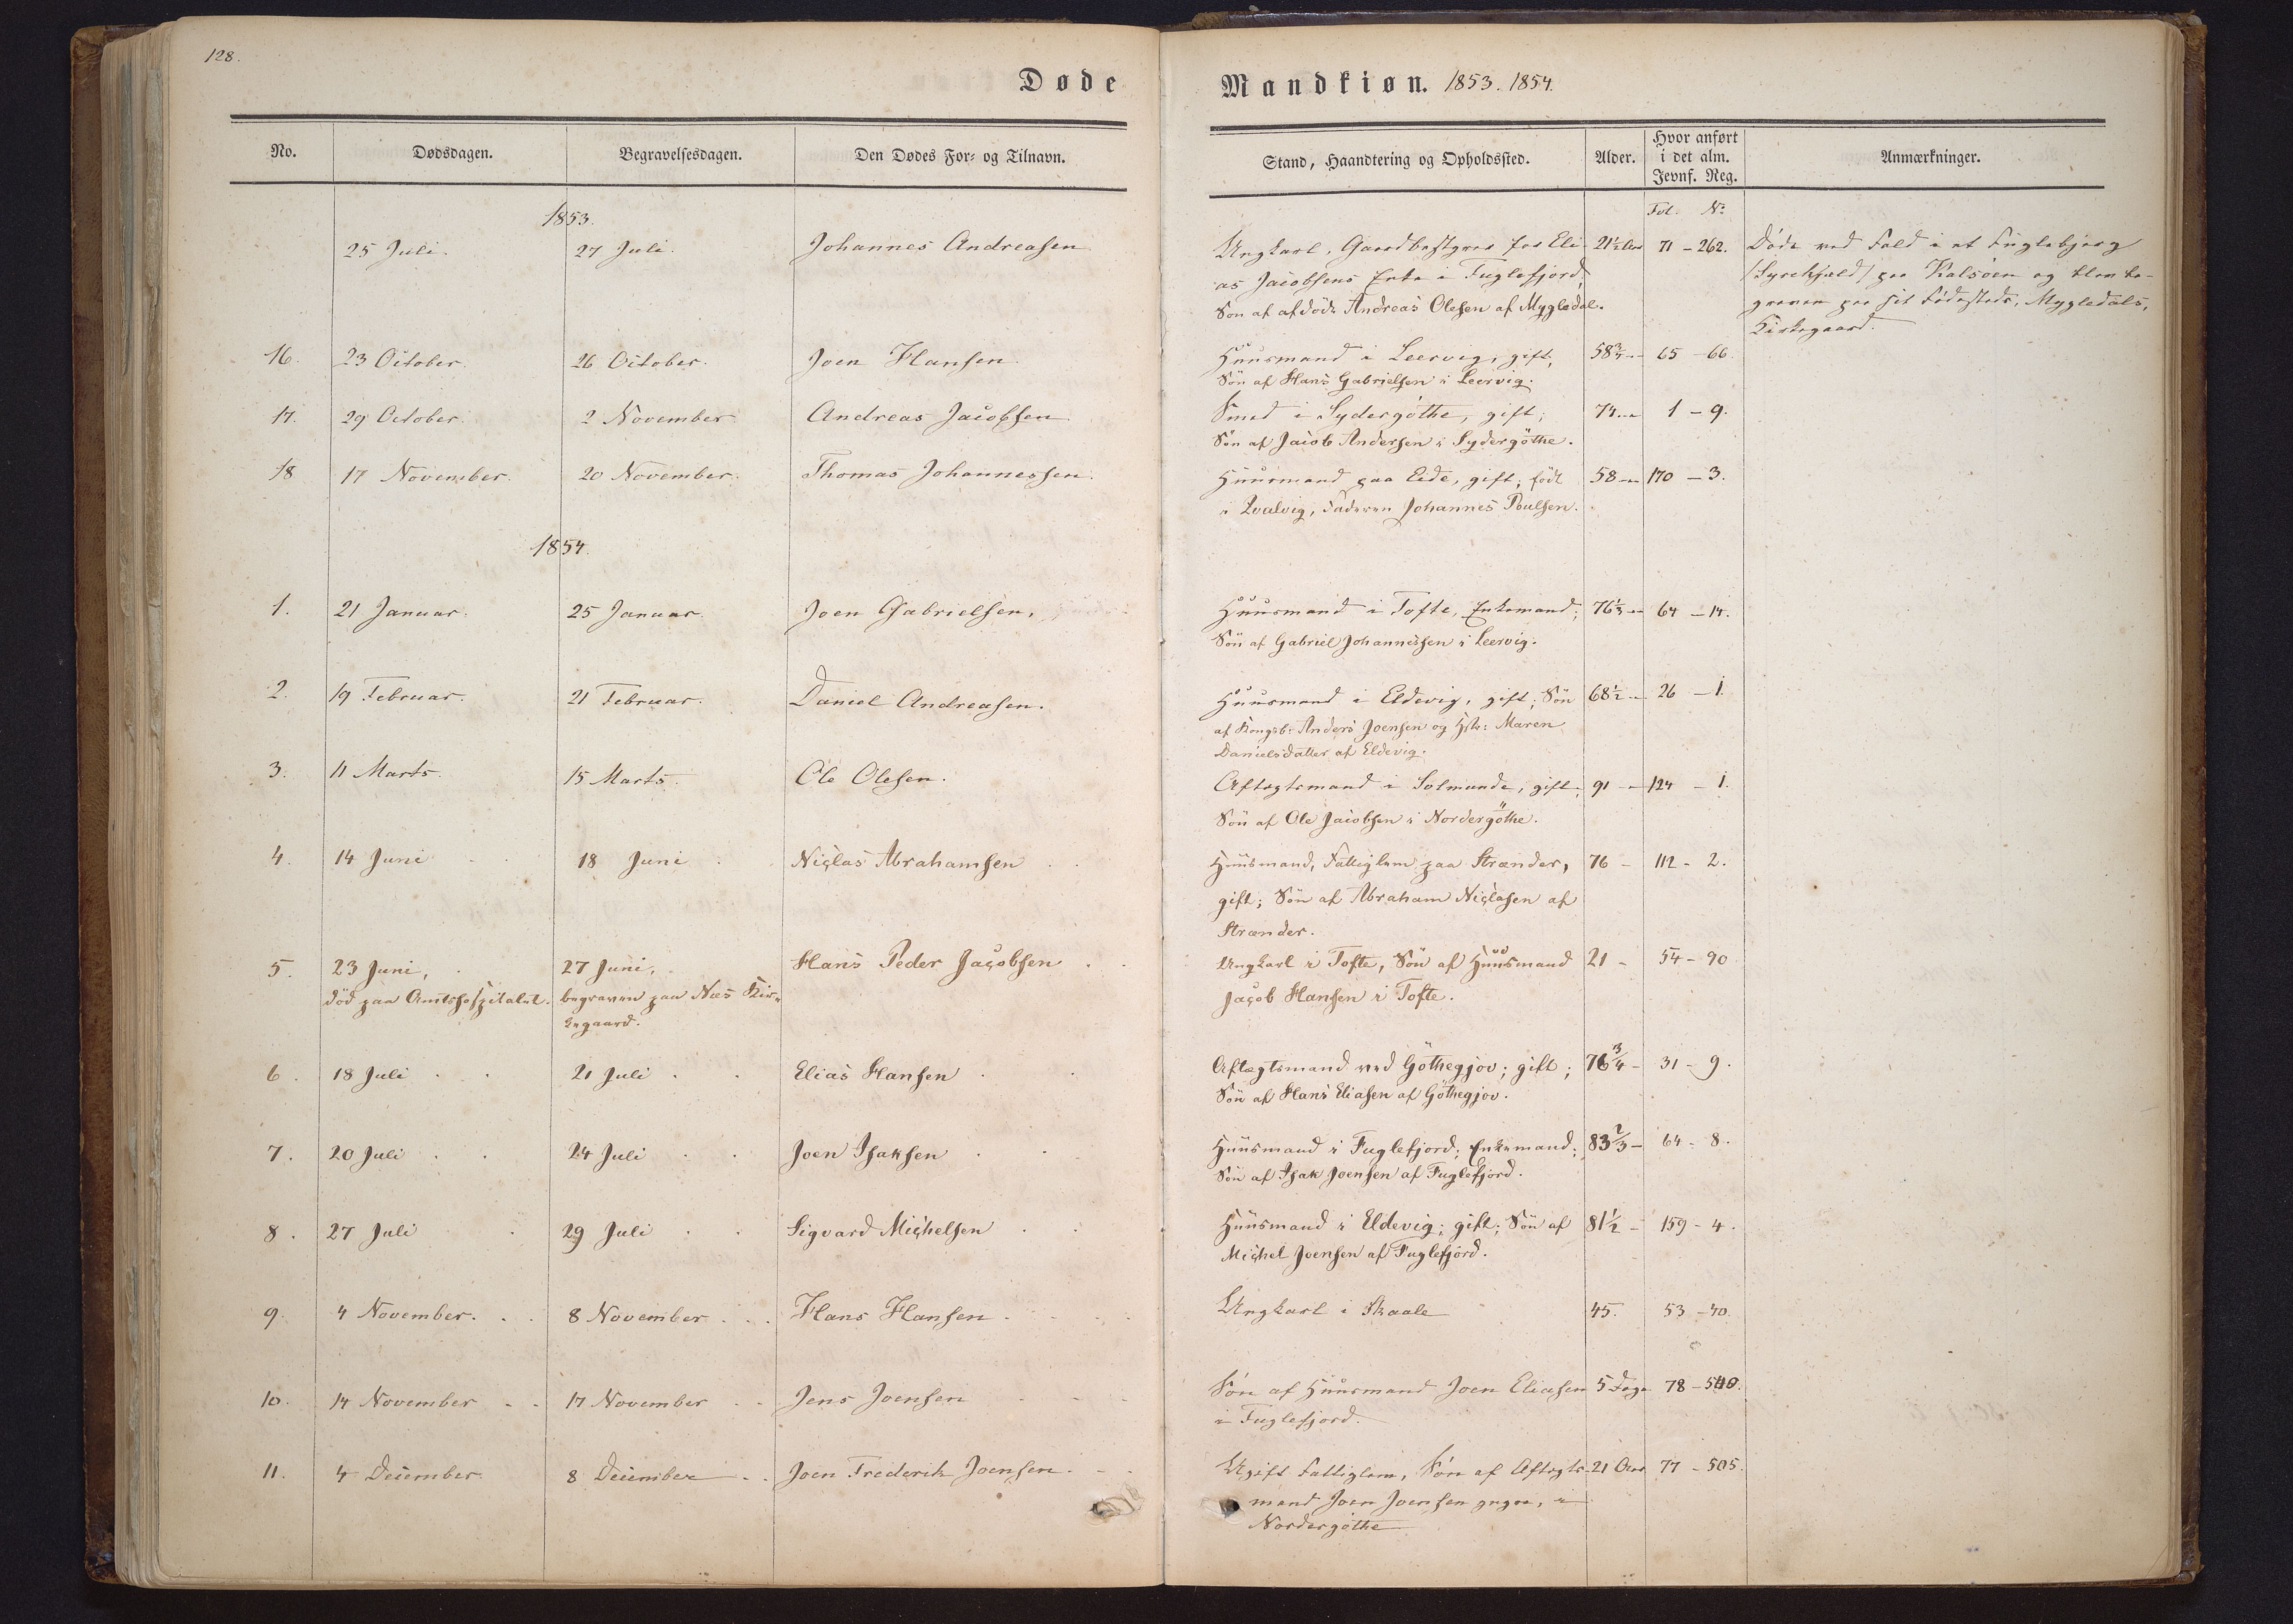 128.
Døde
Mandkiøn. 1853. 1854.
No.
Dødsdagen.
Begravelsesdagen.
Den Dødes For- og Tilnavn.
Stand, Haandtering og Opholdssted.
Alder.
Hvor anført
i det alm.
Jevnf. Reg.
Anmærkninger.
1853.
Fol. No
25 Juli. 27 Juli. Johannes Andreasen Ungkarl, Gaardbestyrer for Eli- 21½ Aar 71 - 262. Döde ved Fald i et Fuglebjerg
as Jacobsens Enke i Fuglefjord, /Syrehjeld/ paa Kalsöen og blev be-
Søn af afdöde Andreas Olesen af Mygledal. graven paa sit Födesteds, Mygledals,
Kirkegaard.
16. 23 October. 26 October. Joen Hansen Huusmand i Leervig, gift, 58¾ 65 - 66
Sön af Hans Gabrielsen i Leervig.
17. 29 October. 2 November Andreas Jacobsen Smed i Sydergöthe, gift; 74 1 - 9.
Sön af Jacob Andersen i Sydergöthe.
18 17 November. 20 November. Thomas Johannessen. Huusmand paa Eide, gift, födt 58 170 - 3.
i Qvalvig, Faderen Johannes Poulsen.
1854.
1. 21 Januar. 25 Januar. Joen Gabrielsen. Huusmand i Tofte, Enkemand; 76⅓ 64 - 14.
Sön af Gabriel Johannessen i Leervig.
2. 19 Februar. 21 Februar. Daniel Andreasen. Huusmand i Eldevig, gift; Sön 68½ 26 - 1.
af Kongsb. Anders Joensen og Hstr: Maren
Danielsdatter af Eldevig.
3. 11 Marts. 15 Marts. Ole Olesen. Aftægtsmand i Solmunde, gift; 91 124 - 1.
Sön af Ole Jacobsen i Nordergöthe.
4. 14 Juni 18 Juni Niclas Abrahamsen Huusmand, Fattiglem paa Strænder, 76 - 112 - 2.
gift; Sön af Abraham Niclasen af
Strænder.
5. 23 Juni, 27 Juni, Hans Peder Jacobsen Ungkarl i Tofte, Sön af Huusmand 21 - 54 - 90
död paa Amtshospitalet. begraven paa Næs Kir- Jacob Hansen i Tofte.
kegaard.
6. 18 Juli 21 Juli Elias Hansen Aftægtsmand ved Göthegjov; gift; 76¾ - 31 - 9.
Sön af Hans Eliasen af Göthegjov.
7. 20 Juli 24 Juli Joen Isaksen Huusmand i Fuglefjord; Enkemand; 83⅔ - 64 - 8.
Sön af Isak Joensen af Fuglefjord.
8. 27 Juli 29 Juli Sigvard Michelsen Huusmand i Eldevig; gift; Sön af 81½ - 159 - 4.
Michel Joensen af Fuglefjord.
9. 4 November. 8 November Hans Hansen Ungkarl i Skaale 45. 53 - 40.
10. 14 November 17 November Jens Joensen Sön af Huusmand Joen Eliasen 5 Dage 78 - 540.
i Fuglefjord.
11. 4 December 8 December Joen Frederik Joensen. Ugift Fattiglem, Sön af Aftægts- 21 Aar 77 - 505.
mand Joen Joensen yngre, i
Nordergöthe